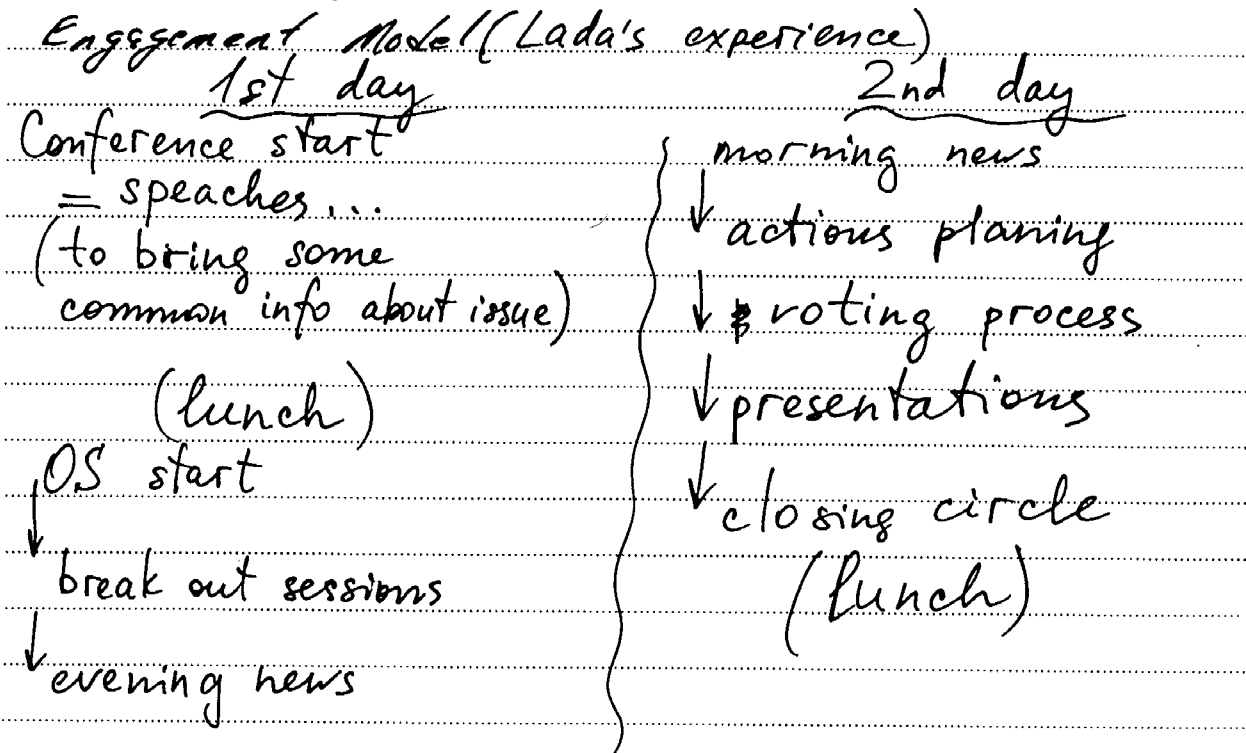 Engagement Model (Lada's experience)
1st day
Conference start
= speaches...
(to bring some
common info about issue)
(lunch)
OS start
↓
break out sessions
↓
evening news
2nd day
morning news
↓ actions planing
↓ voting process
↓ presentations
↓ closing circle
(lunch)